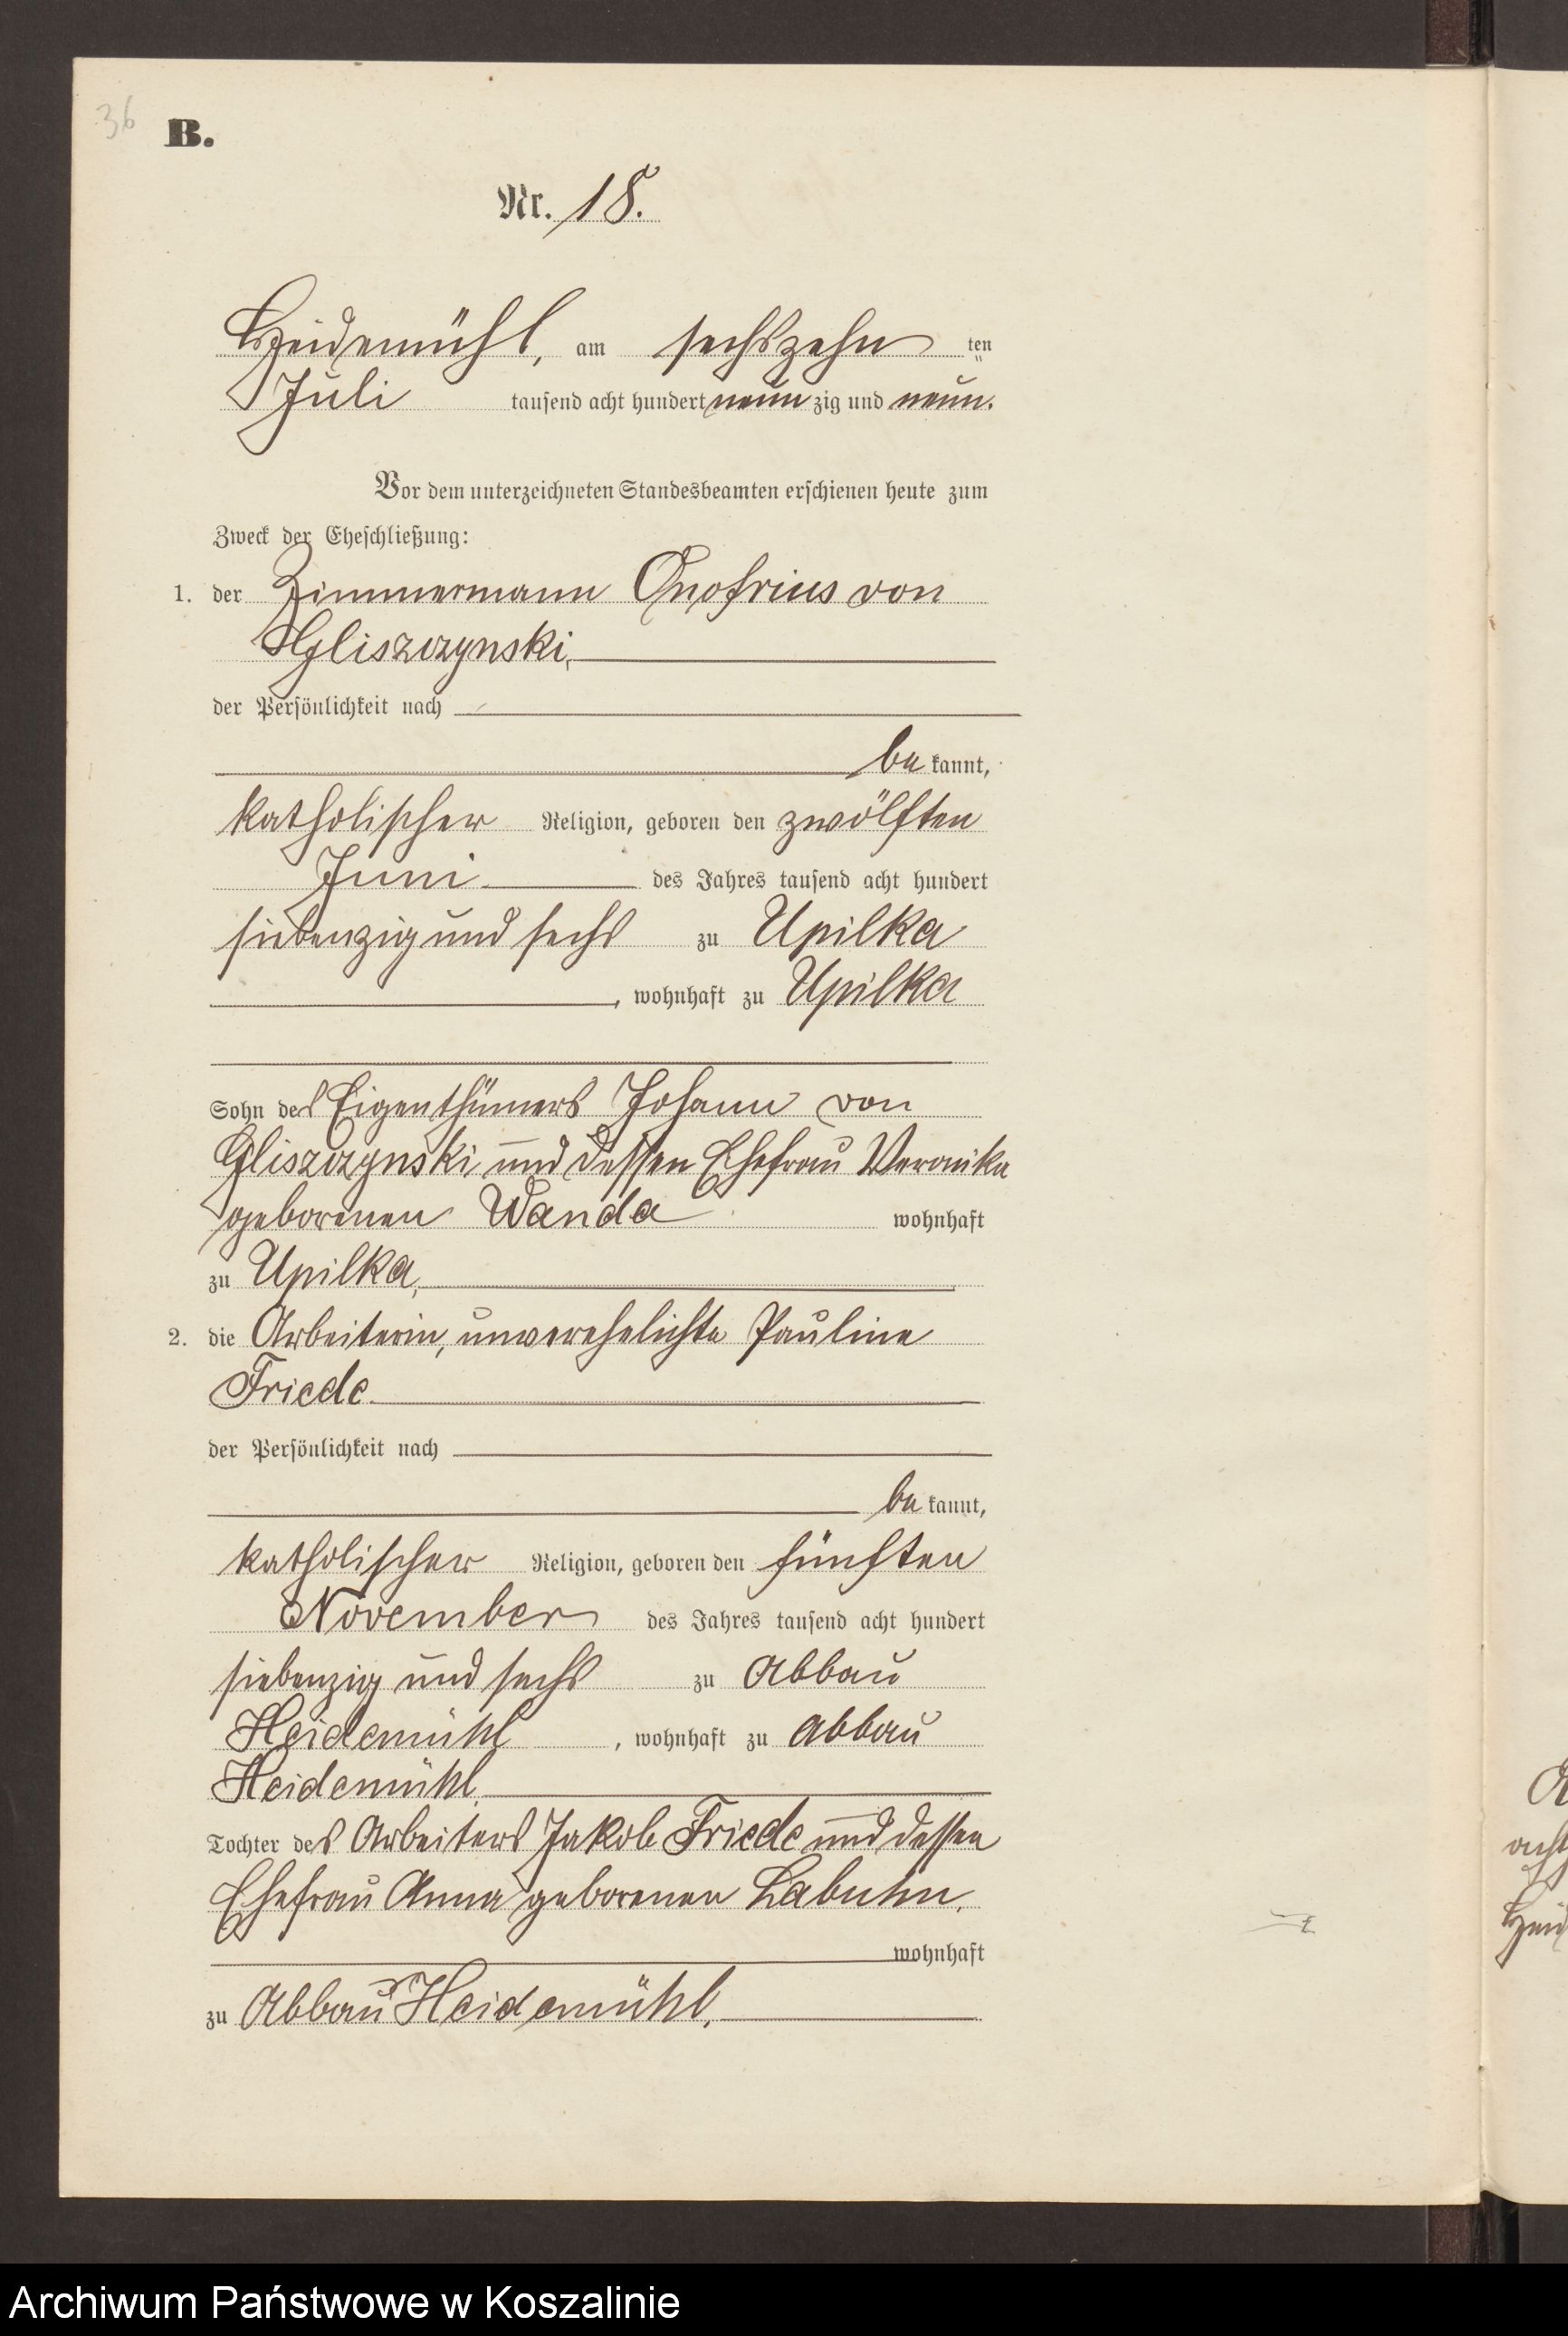 36
B.
Nr. 18.
Heidemühl, am sechszehn ten
Juli tausend acht hundert neun zig und neun.
Vor dem unterzeichneten Standesbeamten erschienen heute zum
Zweck der Eheschließung:
1. der Zimmermann Onofrius von
Gliszczynski,
der Persönlichkeit nach
be kannt,
katholischer Religion, geboren den zwölften
Juni des Jahres tausend acht hundert
siebenzig und sechs zu Upilka
, wohnhaft zu Upilka
Sohn des Eigenthümers Johann von
Gliszczynski und dessen Ehefrau Veronika
geborenen Wanda wohnhaft
zu Upilka,
2. die Arbeiterin, unverehelichte Pauline
Friede
der Persönlichkeit nach
be kannt,
katholischer Religion, geboren den fünften
November des Jahres tausend acht hundert
siebenzig und sechs zu Abbau
Heidemühl , wohnhaft zu Abbau
Heidemühl,
Tochter des Arbeiters Jakob Friede und dessen
Ehefrau Anna geborenen Labuhn,
wohnhaft
zu Abbau Heidemühl,
Archiwum Państwowe w Koszalinie